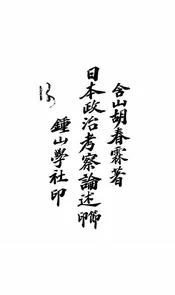 含山胡春霖著
日本政治考察論述
鍾山學社印